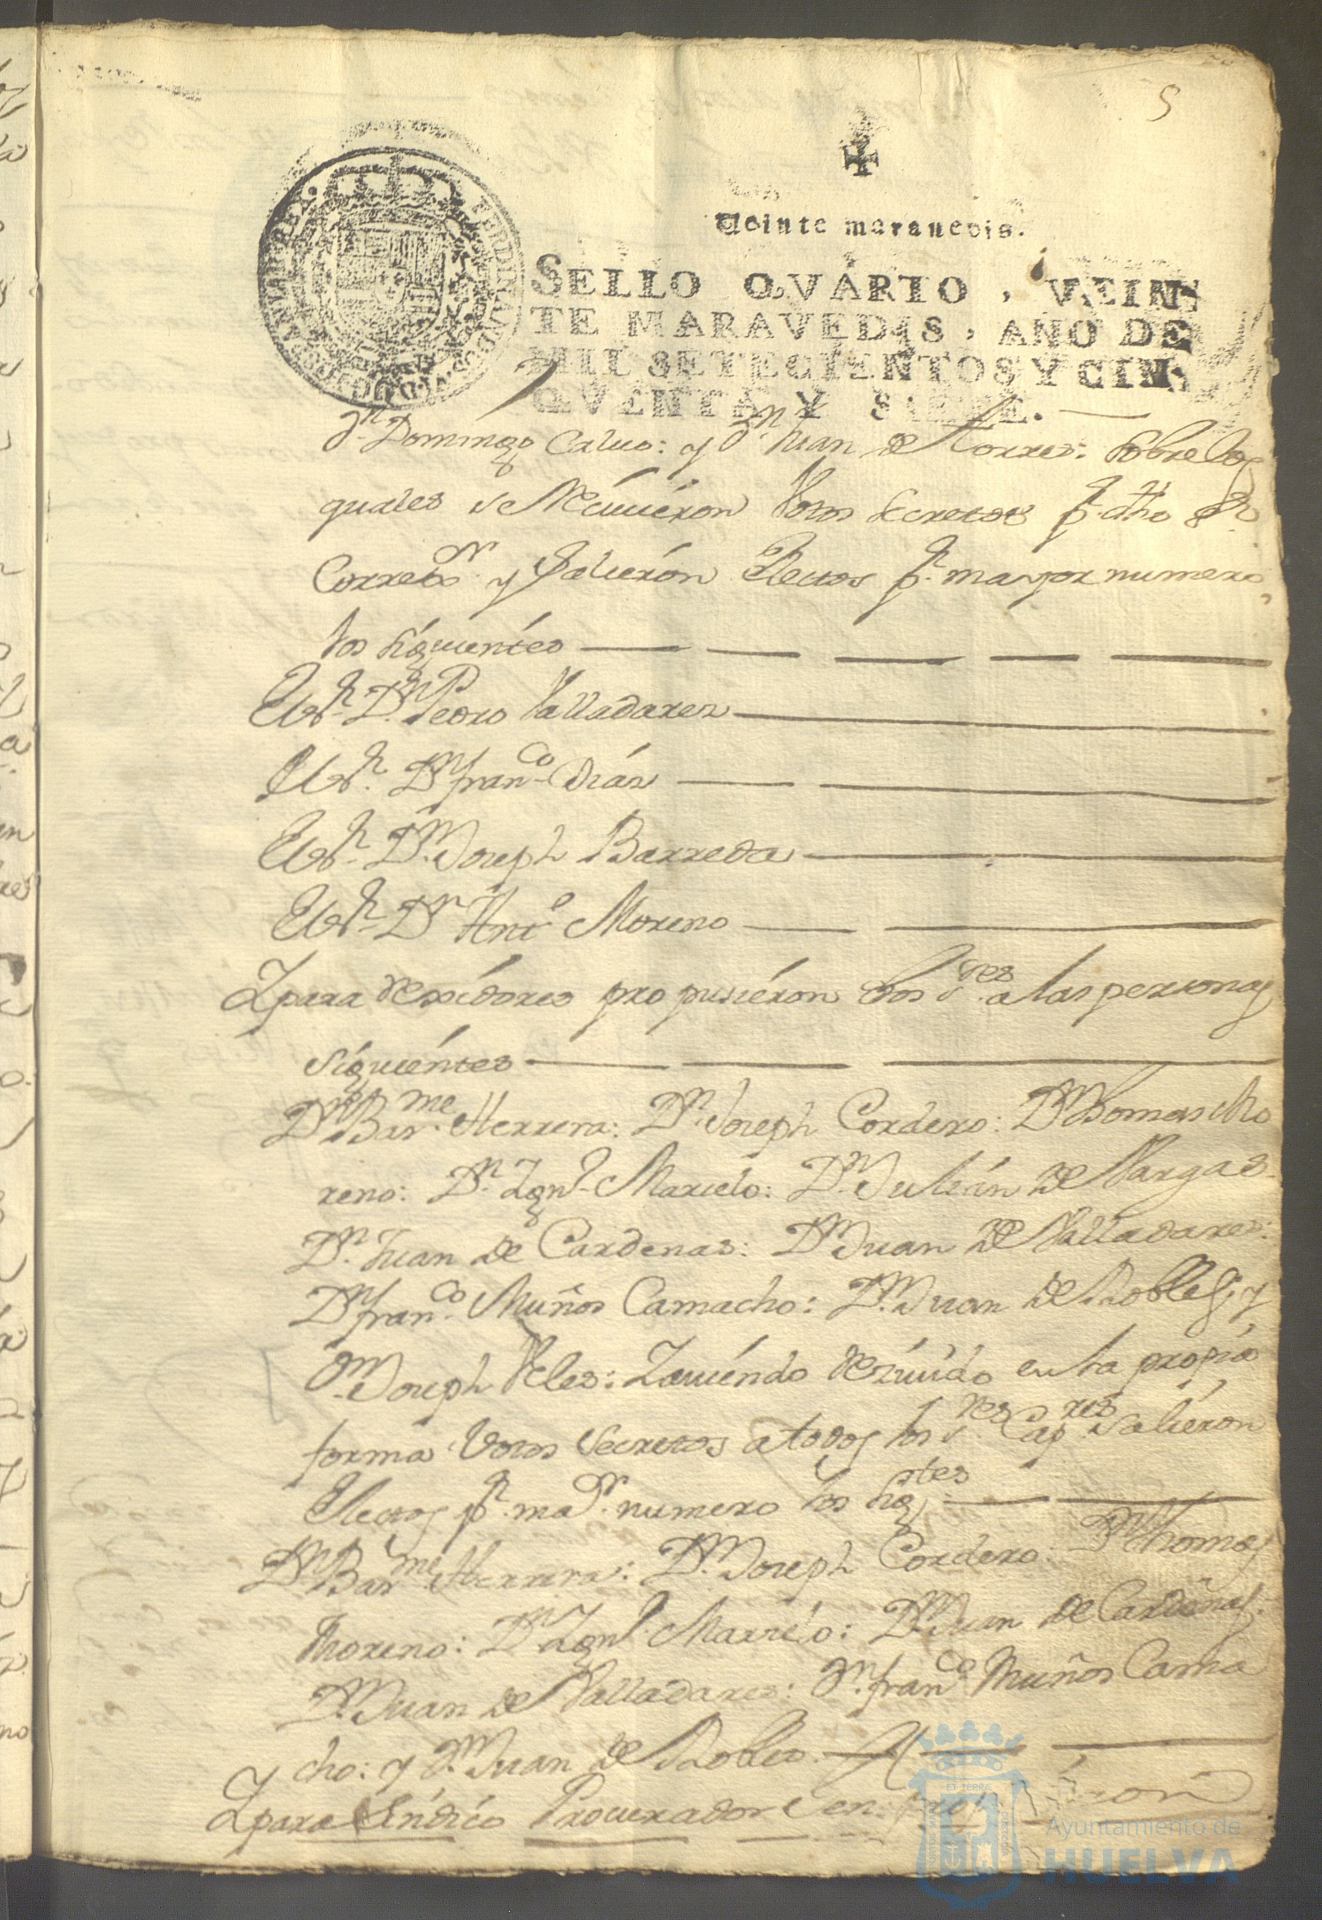 5
Veinte maravedis.
SELLO QVARTO, VEIN
TE MARAVEDIS, AÑO DE
MIL SETECIENTOS Y CIN
QVENTA Y SIETE.
Dn. Domingo Calvo: y Dn. Juan de Torres: Sobre los
quales se Recivieron Votos Secretos pr. dho Sr.
Correxor. y Salieron Electos pr. mayor numero
los siguientes
El Sr. Dn. Pedro Valladares
El Sr. Dn. franco. Dias
El Sr. Dn. Joseph Barreda
El Sr. Dn. Anto. Moreno
Y para Rexidores propusieron dhos Sres. a las personas
siguientes
Dn. Barme. Herrera: Dn. Joseph Cordero: Dn. Thomas Mo
reno: Dn. Ygnº. Marcelo: Dn. Julián de Vargas
Dn. Juan de Cardenas: Dn. Juan de Valladares:
Dn. franco. Muños Camacho: Dn. Juan de Robles; y
Dn. Joseph Veles: Y aviendo Rezivido en la propia
forma Votos Secretos a todos los Sres. Capres. Salieron
Electos pr. maor. numero los sigtes.
Dn. Barme. Herrera: Dn. Joseph Cordero: Dn. Thomas
Moreno: Dn. Ygnº. Marcelo: Dn. Juan de Cardenas:
Dn. Juan de Valladares: Dn. franco. Muños Cama
cho: y Dn. Juan de Robles.
Y para Síndico Procurador Gen.
Ayuntamiento de
HUELVA